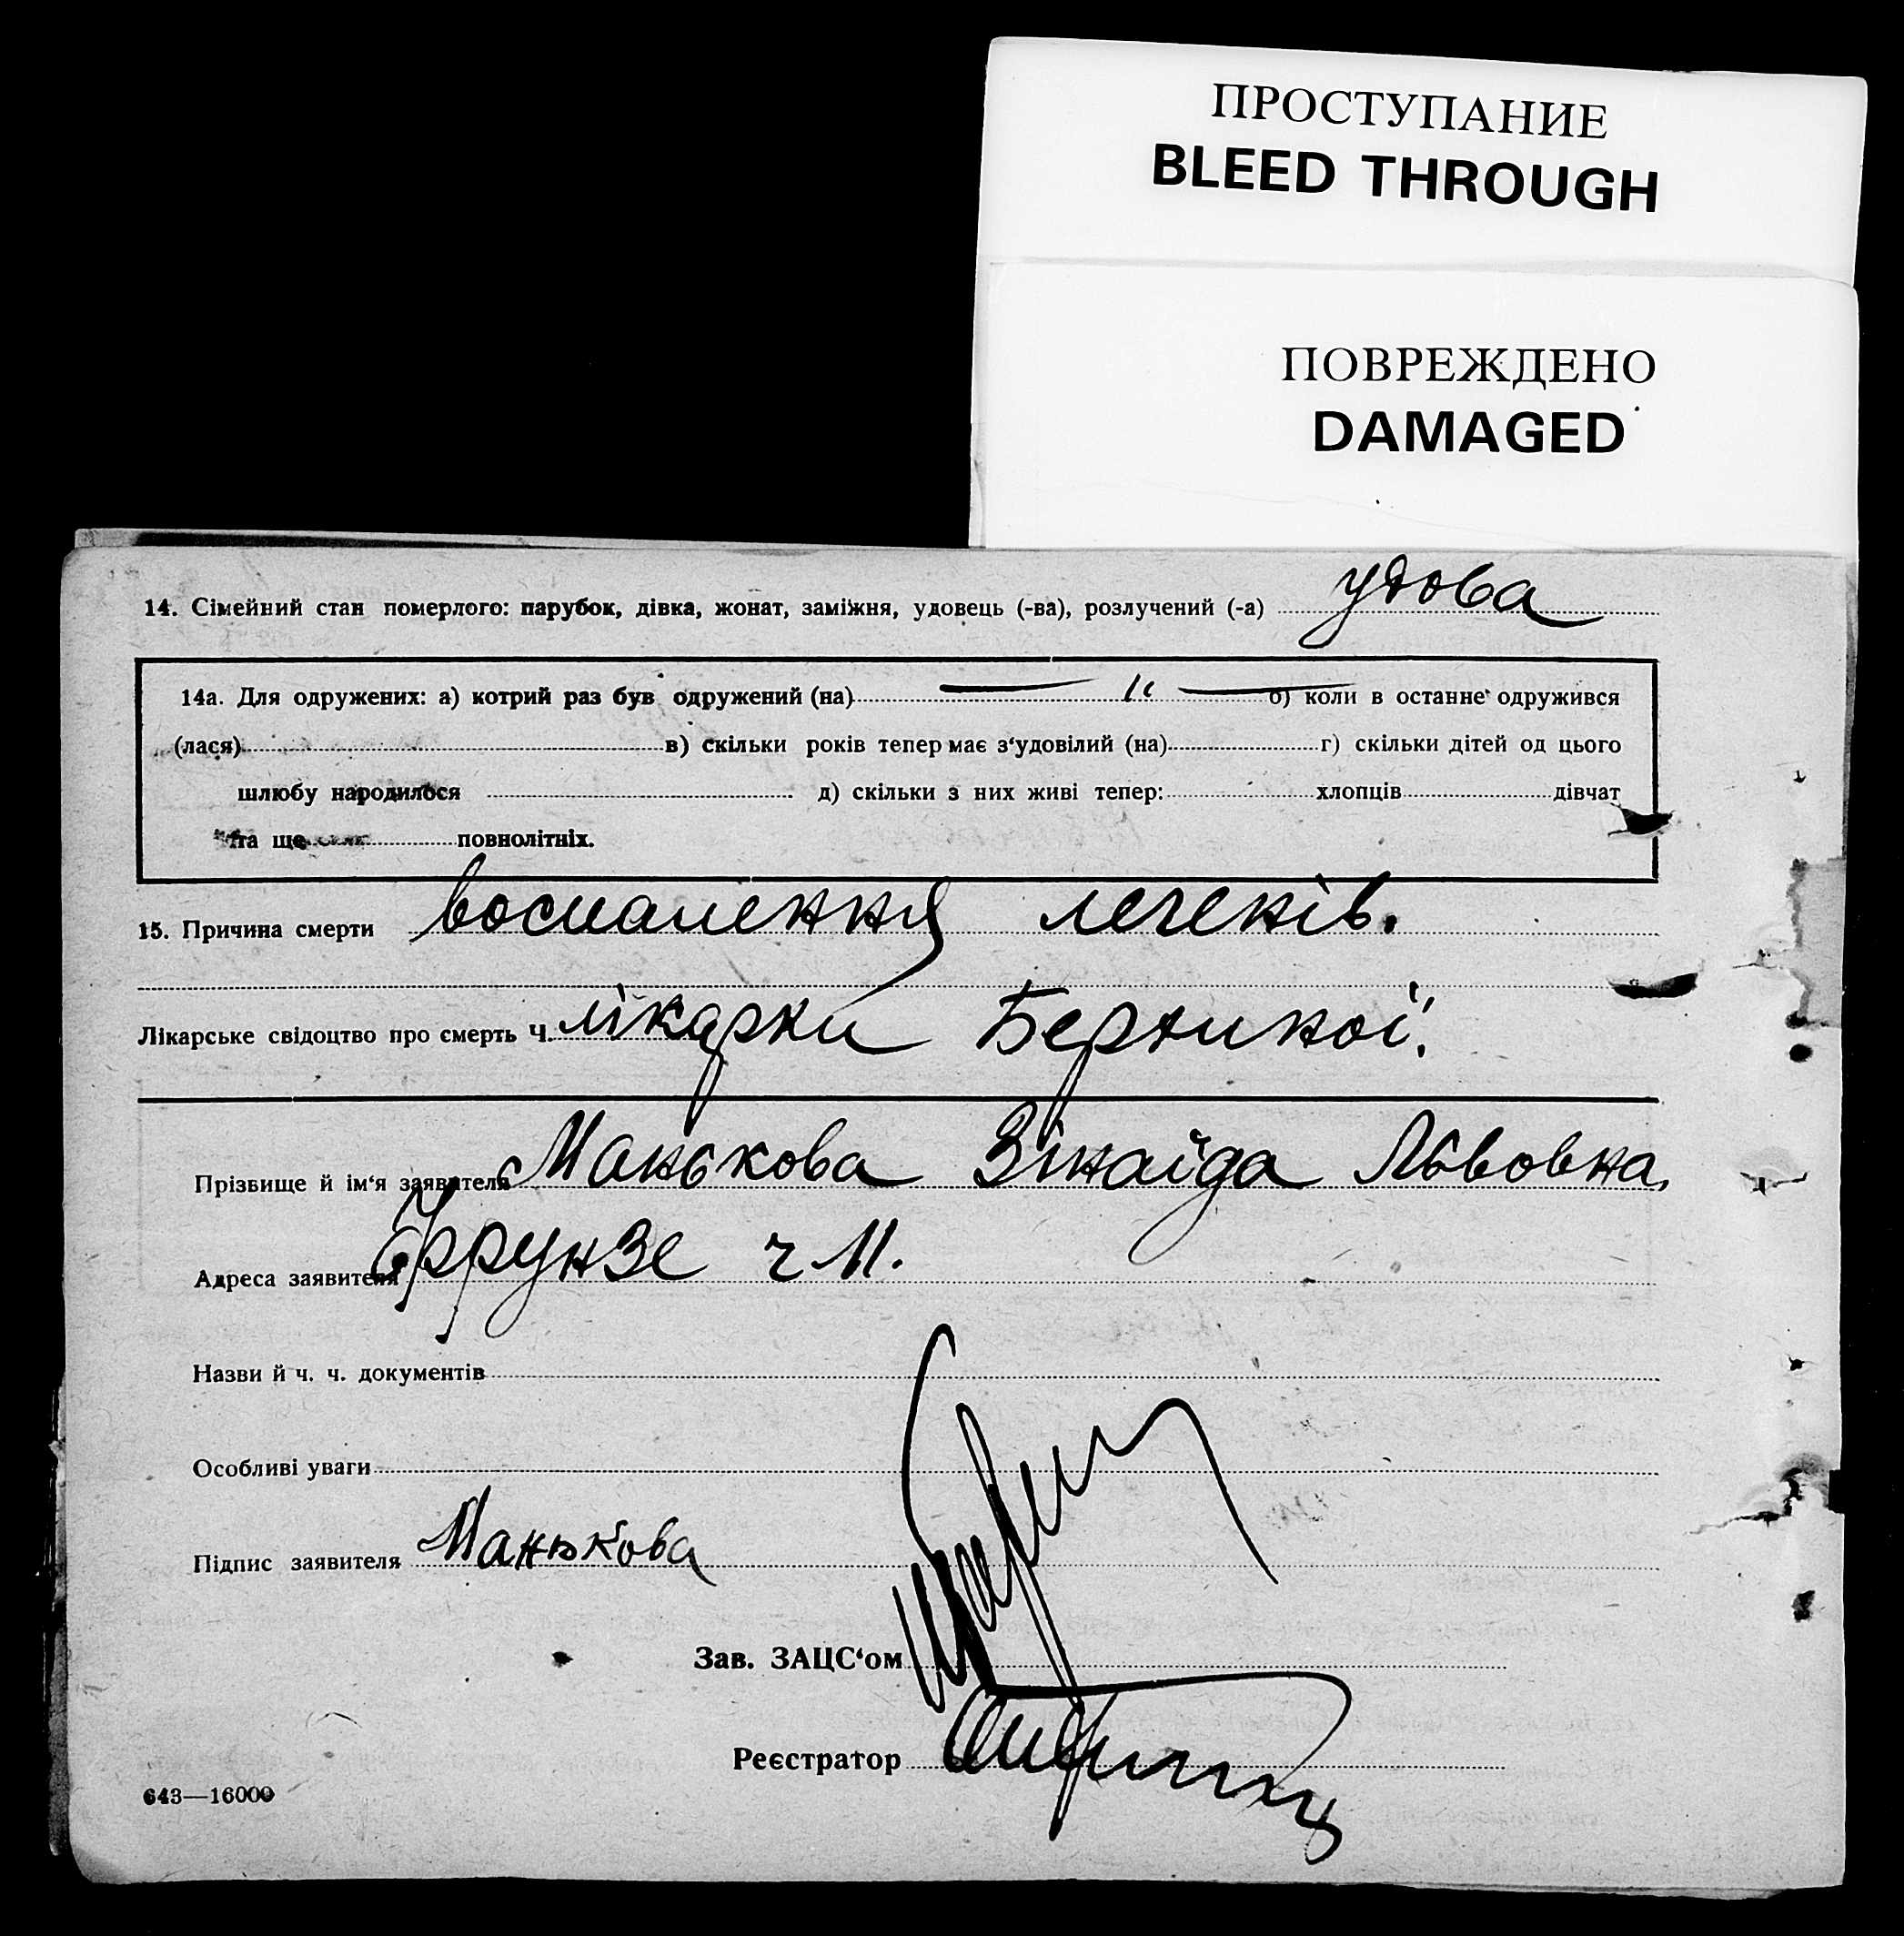 ПРОСТУПАНИЕ
BLEED THROUGH
ПОВРЕЖДЕНО
DAMAGED
14. Сімейний стан померлого: парубок, дівка, жонат, заміжня, удовець (-ва), розлучений (-а) удова
14а. Для одружених: а) котрий раз був одружений (на) — „ — б) коли в останнє одружився
(лася) в) скільки років тепер має з‘удовілий (на) г) скільки дітей од цього
шлюбу народилося д) скільки з них живі тепер: хлопців дівчат
та ще повнолітніх.
15. Причина смерти воспалення легенів.
Лікарське свідоцтво про смерть Ч. лікарки
Прізвище й ім‘я заявителя Манькова Зінаїда Львовна
Адреса заявителя Фрунзе ч 11.
Назви й ч. ч. документів
Особливі уваги
Підпис заявителя Манькова
Зав. ЗАЦС‘ом
Реєстратор
643—16000